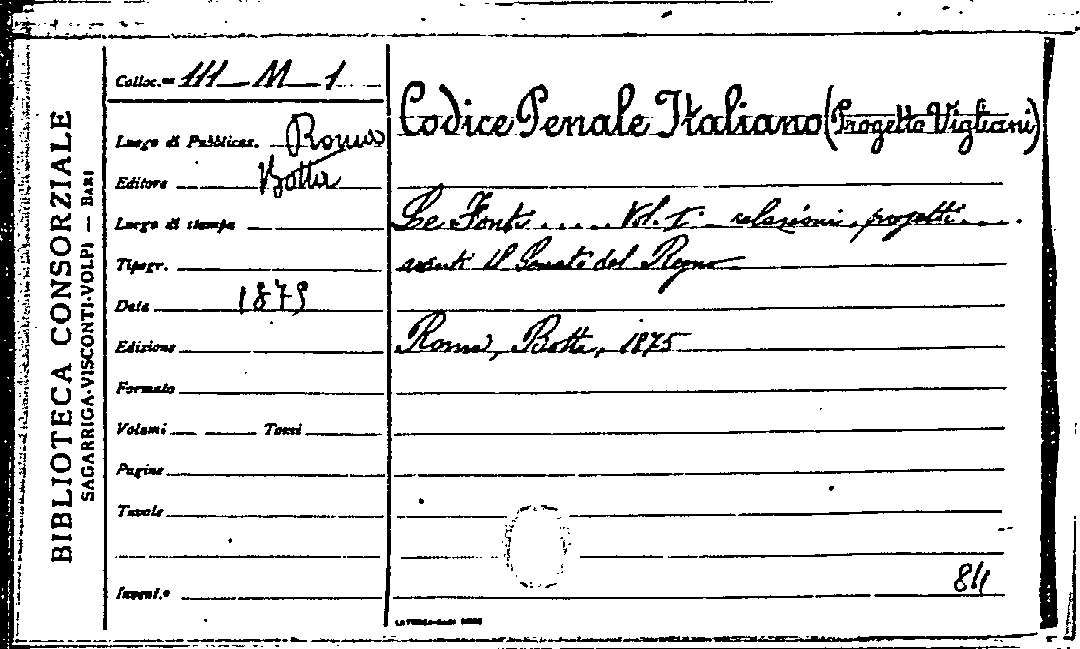 BIBLIOTECA CONSORZIALE
SAGARRIGA-VISCONTI-VOLPI — BARI
Colloc.ne 111 M 1
Luogo di Pubblicaz. Roma
Editore Botta
Luogo di stampa
Tipogr.
Data 1875
Edizione
Formato
Volumi Tomi
Pagine
Tavole
Invent.º
Codice Penale Italiano (Progetto Vigliani)
Le Fonti ..... Vol. I. relazioni, progetti ....
il Senato del Regno
Roma, Botta, 1875
84